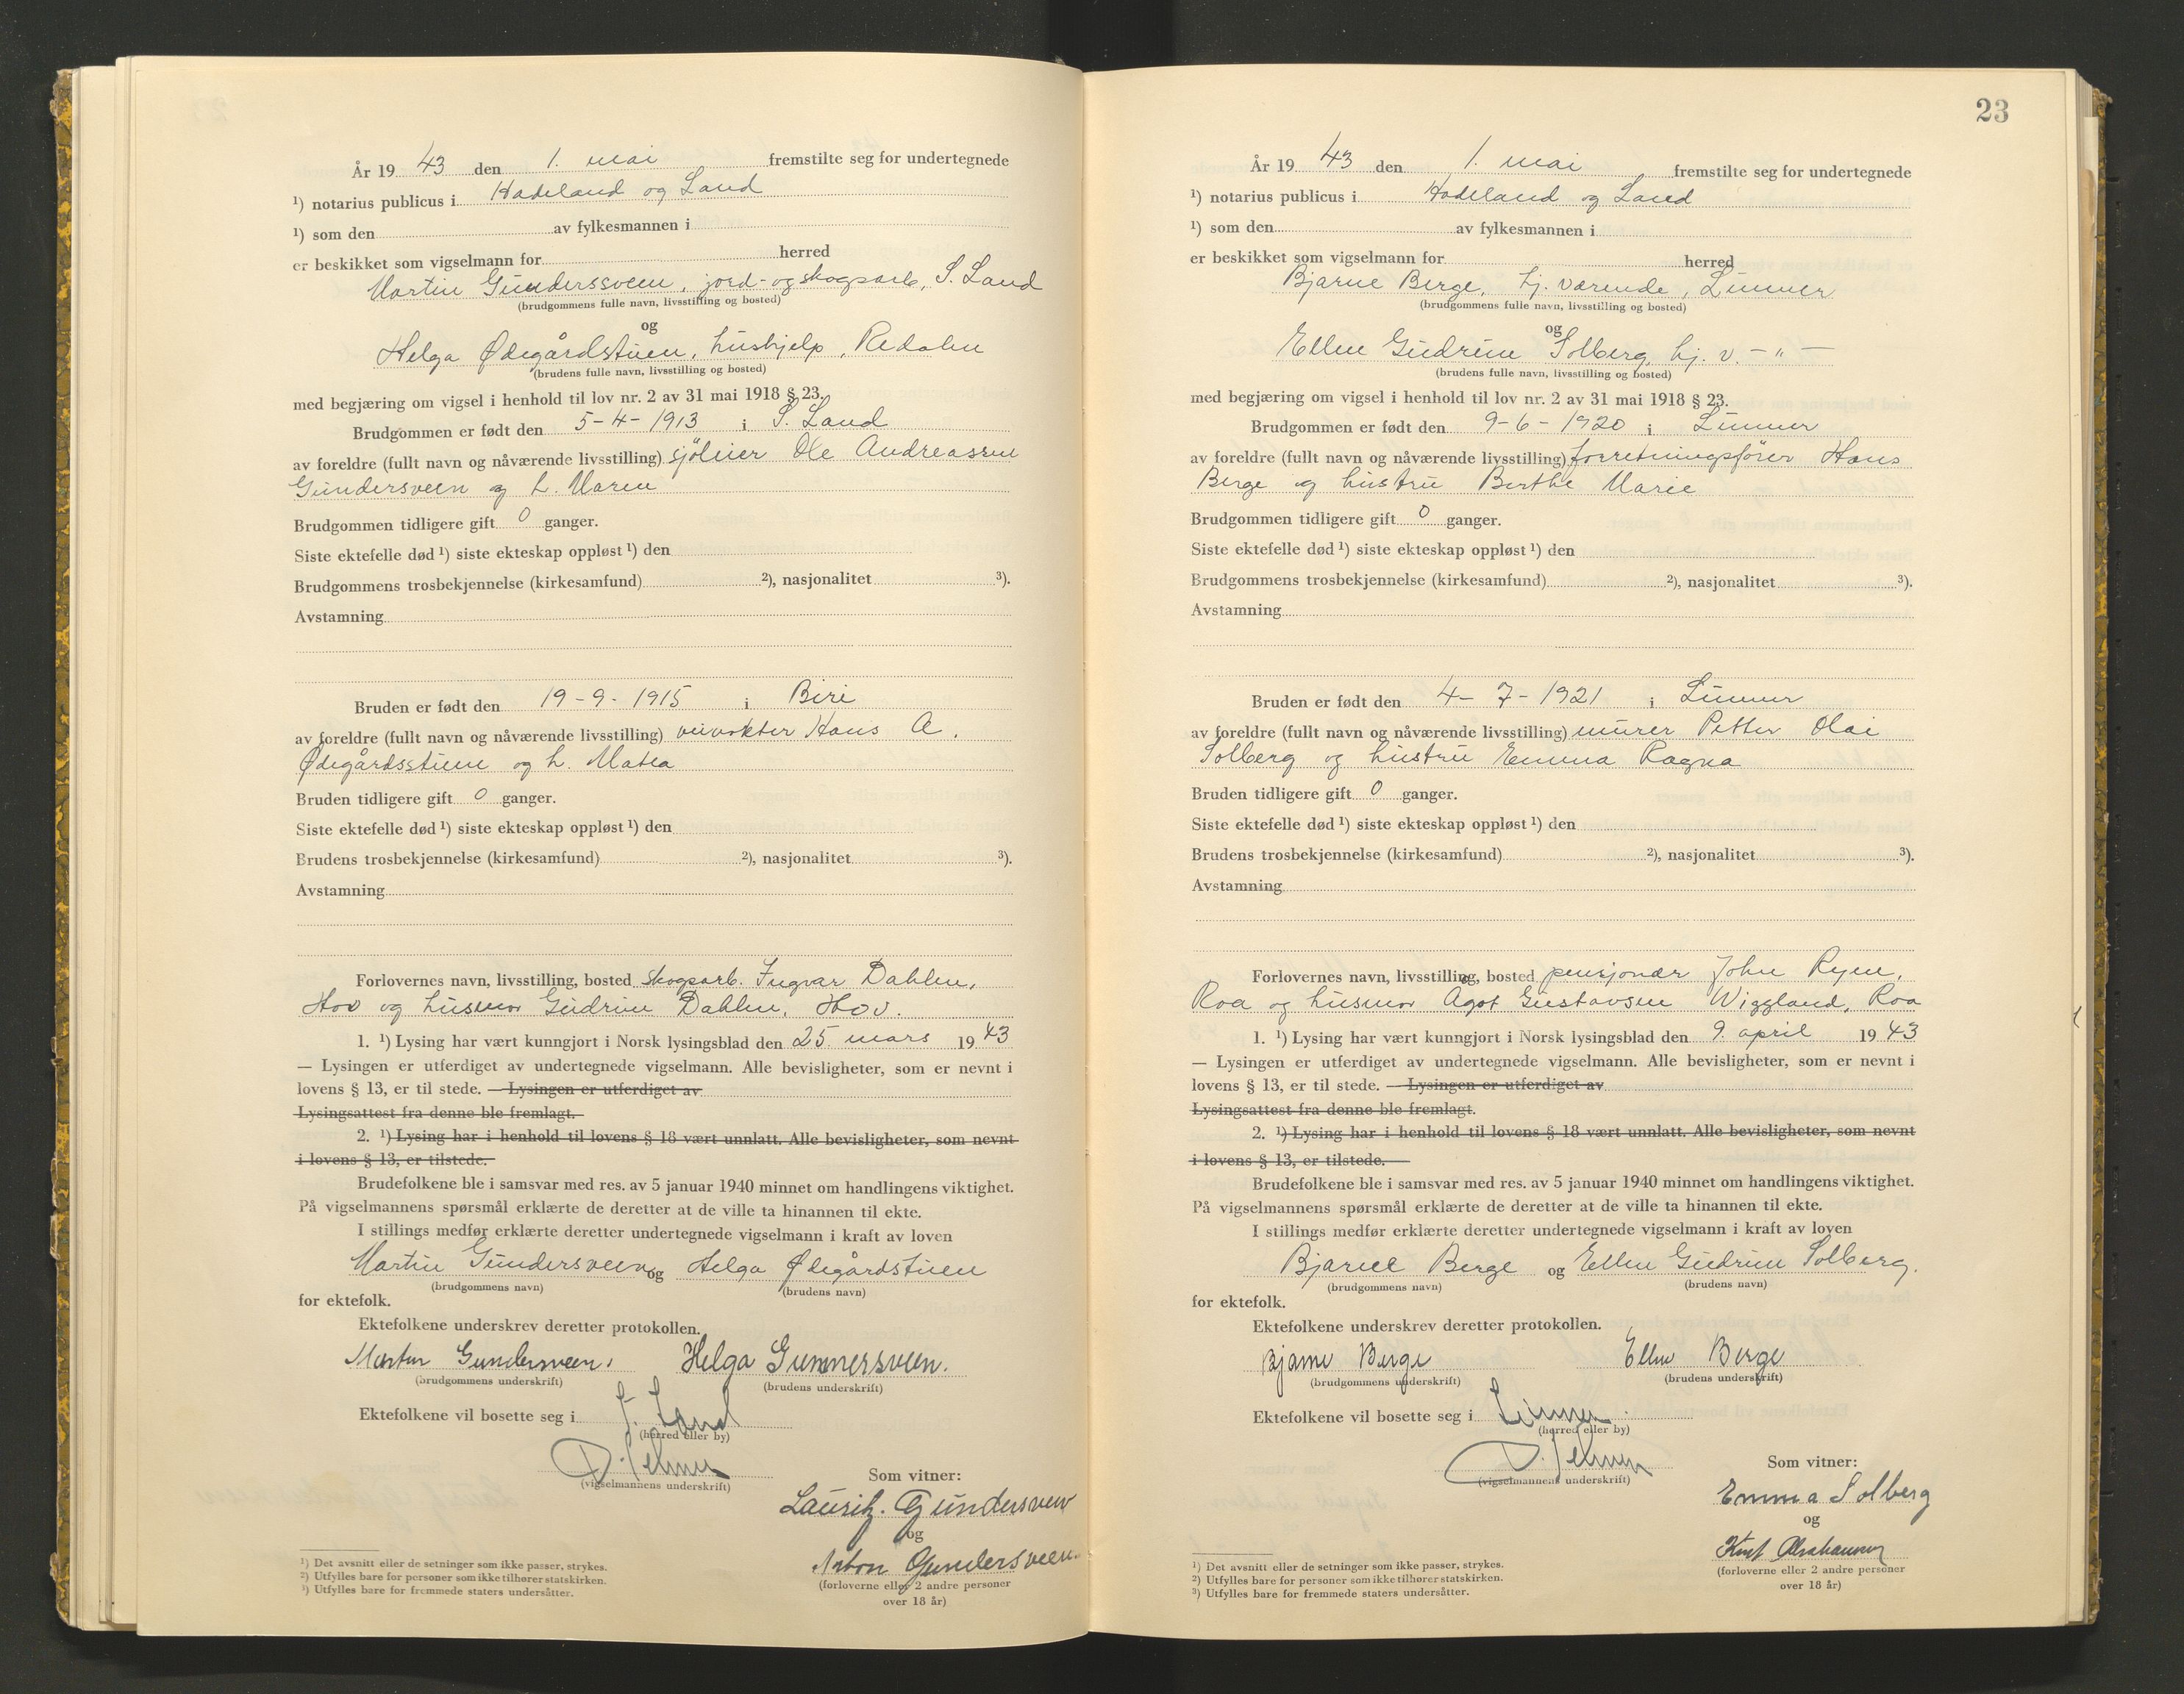 År 19 43 den 1. mai fremstilte seg for undertegnede
¹) notarius publicus i Hadeland og Land
¹) som den av fylkesmannen i
er beskikket som vigselmann for herred
Martin Gunderssveen, jord- og skogsarb, S. Land
(brudgommens fulle navn, livsstilling og bosted)
og
Helga Ødegårdstuen, hushjelp, Redalen
(brudens fulle navn, livsstilling og bosted)
med begjæring om vigsel i henhold til lov nr. 2 av 31 mai 1918 § 23.
Brudgommen er født den 5-4-1913 i S. Land
av foreldre (fullt navn og nåværende livsstilling) sjøleier Ole Andreassen
Gundersveen og h. Maren
Brudgommen tidligere gift 0 ganger.
Siste ektefelle død ¹) siste ekteskap oppløst ¹) den
Brudgommens trosbekjennelse (kirkesamfund) ²), nasjonalitet ³).
Avstamning
Bruden er født den 19-9-1915 i Biri
av foreldre (fullt navn og nåværende livsstilling) veivokter Hans A.
Ødegårdsstuen og h. Matea
Bruden tidligere gift 0 ganger.
Siste ektefelle død ¹) siste ekteskap oppløst ¹) den
Brudens trosbekjennelse (kirkesamfund) ²), nasjonalitet ³).
Avstamning
Forlovernes navn, livsstilling, bosted skogsarb. Ingvar Dahlen,
Hov og husmor Gudrun Dahlen, Hov.
1. ¹) Lysing har vært kunngjort i Norsk lysingsblad den 25. mars 19 43
— Lysingen er utferdiget av undertegnede vigselmann. Alle bevisligheter, som er nevnt i
lovens § 13, er til stede. — Lysingen er utferdiget av
Lysingsattest fra denne ble fremlagt.
2. ¹) Lysing har i henhold til lovens § 18 vært unnlatt. Alle bevisligheter, som nevnt
i lovens § 13, er tilstede.
Brudefolkene ble i samsvar med res. av 5 januar 1940 minnet om handlingens viktighet.
På vigselmannens spørsmål erklærte de deretter at de ville ta hinannen til ekte.
I stillings medfør erklærte deretter undertegnede vigselmann i kraft av loven
Martin Gundersveen og Helga Ødegårdstuen
(brudgommens navn) (brudens navn)
for ektefolk.
Ektefolkene underskrev deretter protokollen.
Martin Gundersveen. Helga Gunnersveen.
(brudgommens underskrift) (brudens underskrift)
Ektefolkene vil bosette seg i S. Land
(herred eller by)
(vigselmannens underskrift)
Som vitner:
Lauritz. Gundersveen
og
Anton Gundersveen.
(forloverne eller 2 andre personer
over 18 år)
¹) Det avsnitt eller de setninger som ikke passer, strykes.
²) Utfylles bare for personer som ikke tilhører statskirken.
³) Utfylles bare for fremmede staters undersåtter.
23
År 19 43 den 1. mai fremstilte seg for undertegnede
¹) notarius publicus i Hadeland og Land
¹) som den av fylkesmannen i
er beskikket som vigselmann for herred
Bjarne Berge, hj. værende, Lunner
(brudgommens fulle navn, livsstilling og bosted)
og
Ellen Gudrun Solberg, hj. v. — " —
(brudens fulle navn, livsstilling og bosted)
med begjæring om vigsel i henhold til lov nr. 2 av 31 mai 1918 § 23.
Brudgommen er født den 9-6-1920 i Lunner
av foreldre (fullt navn og nåværende livsstilling) forretningsfører Hans
Berge og hustru Berthe Marie
Brudgommen tidligere gift 0 ganger.
Siste ektefelle død ¹) siste ekteskap oppløst ¹) den
Brudgommens trosbekjennelse (kirkesamfund) ²), nasjonalitet ³).
Avstamning
Bruden er født den 4-7-1921 i Lunner
av foreldre (fullt navn og nåværende livsstilling) murer Petter Olai
Solberg og hustru Emma Ragna
Bruden tidligere gift 0 ganger.
Siste ektefelle død ¹) siste ekteskap oppløst ¹) den
Brudens trosbekjennelse (kirkesamfund) ²), nasjonalitet ³).
Avstamning
Forlovernes navn, livsstilling, bosted pensjonær John Ryen,
Roa og husmor Ågot Gustavsen Wiggland, Roa
1. ¹) Lysing har vært kunngjort i Norsk lysingsblad den 9. april 19 43
— Lysingen er utferdiget av undertegnede vigselmann. Alle bevisligheter, som er nevnt i
lovens § 13, er til stede. — Lysingen er utferdiget av
Lysingsattest fra denne ble fremlagt.
2. ¹) Lysing har i henhold til lovens § 18 vært unnlatt. Alle bevisligheter, som nevnt
i lovens § 13, er tilstede.
Brudefolkene ble i samsvar med res. av 5 januar 1940 minnet om handlingens viktighet.
På vigselmannens spørsmål erklærte de deretter at de ville ta hinannen til ekte.
I stillings medfør erklærte deretter undertegnede vigselmann i kraft av loven
Bjarne Berge og Ellen Gudrun Solberg.
(brudgommens navn) (brudens navn)
for ektefolk.
Ektefolkene underskrev deretter protokollen.
Bjarne Berge Ellen Berge
(brudgommens underskrift) (brudens underskrift)
Ektefolkene vil bosette seg i Lunner.
(herred eller by)
(vigselmannens underskrift)
Som vitner:
Emma Solberg
og
(forloverne eller 2 andre personer
over 18 år)
¹) Det avsnitt eller de setninger som ikke passer, strykes.
²) Utfylles bare for personer som ikke tilhører statskirken.
³) Utfylles bare for fremmede staters undersåtter.